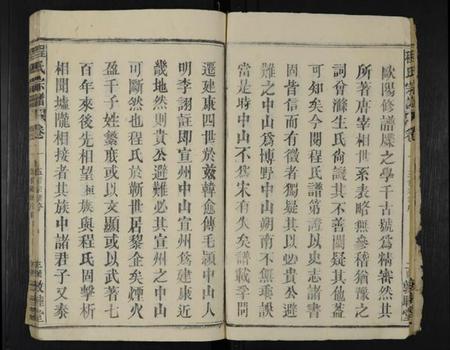 歐陽修譜牒之學千古號為精審然其
所著唐宰相世系表略無參稽猶豫之
詞兗滁生氏尚譏其不善闕疑其他蓋
可知矣今閱程氏譜第證以史志諸書
固皆信而有徵者獨疑其以
貴公避
難之中山為博野中山朔南不無譌誤
當是時中山不為宋有久矣譜載孚問
遷建康四世於茲韓愈傳毛穎中山人
明李詡註即宣州中山宣州為建康近
地然則貴公避難必其宣州之中山
可斷然也程氏於新世居黎企矣煙火
盈千子姓繁庶或以文顯或以武著七
百年來後先相望極族與程氏固擊析
相聞墟隴相接者其族中諸君子又泰
程氏宗譜
卷一
敦睦堂